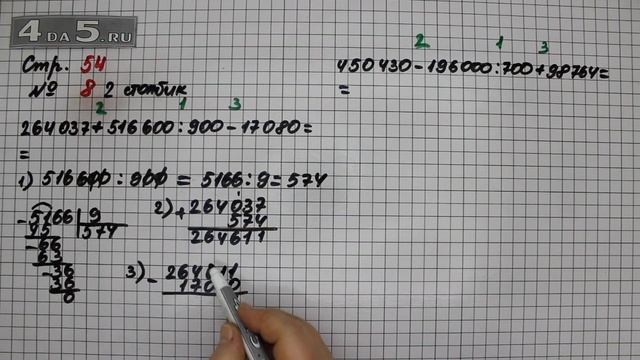 4 DA 5.RU
Стр. 54
№ 8 2 столбик
2 1 3
264037+516600:900-17080=
=
1) 516600 : 900 = 5166:9=574
- 5166 9
45 574
- 66
63
- 36
36
0
2) + 264037
574
264611
3) - 264611
2 1 3
450430-196000:700+98764=
=